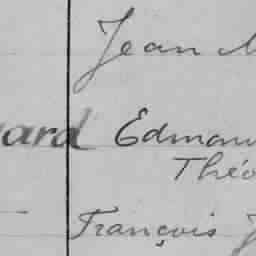 Jean
ard Edmon
Théo
François